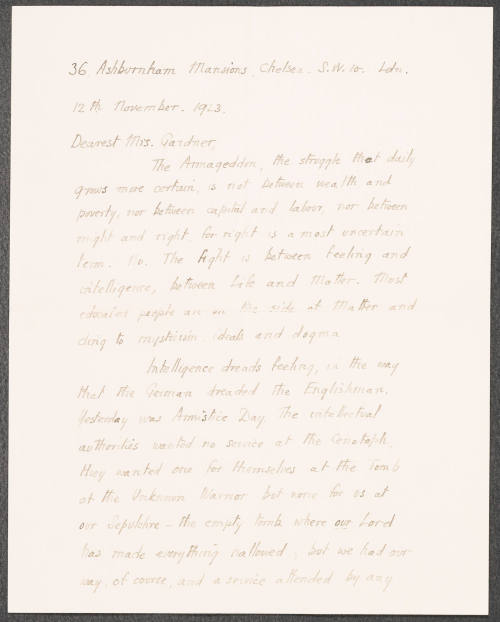 36 Ashburnham Mansions, Chelsea. S.W. 10. Ldn.
12th November. 1923.
Dearest Mrs. Gardner,
The Armageddon, the struggle that daily
grows more certain, is not between wealth and
poverty, nor between capital and labour, nor between
might and right, for right is a most uncertain
term. No. The fight is between feeling and
intelligence, between Life and Matter. Most
educated people are on the side of Matter and
cling to mysticism, ideals and dogma
Intelligence dreads feeling, in the way
that the German dreaded the Englishman.
Yesterday was Armistice Day. The intellectual
authorities wanted no service at the Cenotaph.
They wanted one for themselves at the Tomb
of the Unknown Warrior but none for us at
our Sepulchre - the empty tomb where our Lord
has made everything hallowed, but we had our
way, of course, and a service attended by any